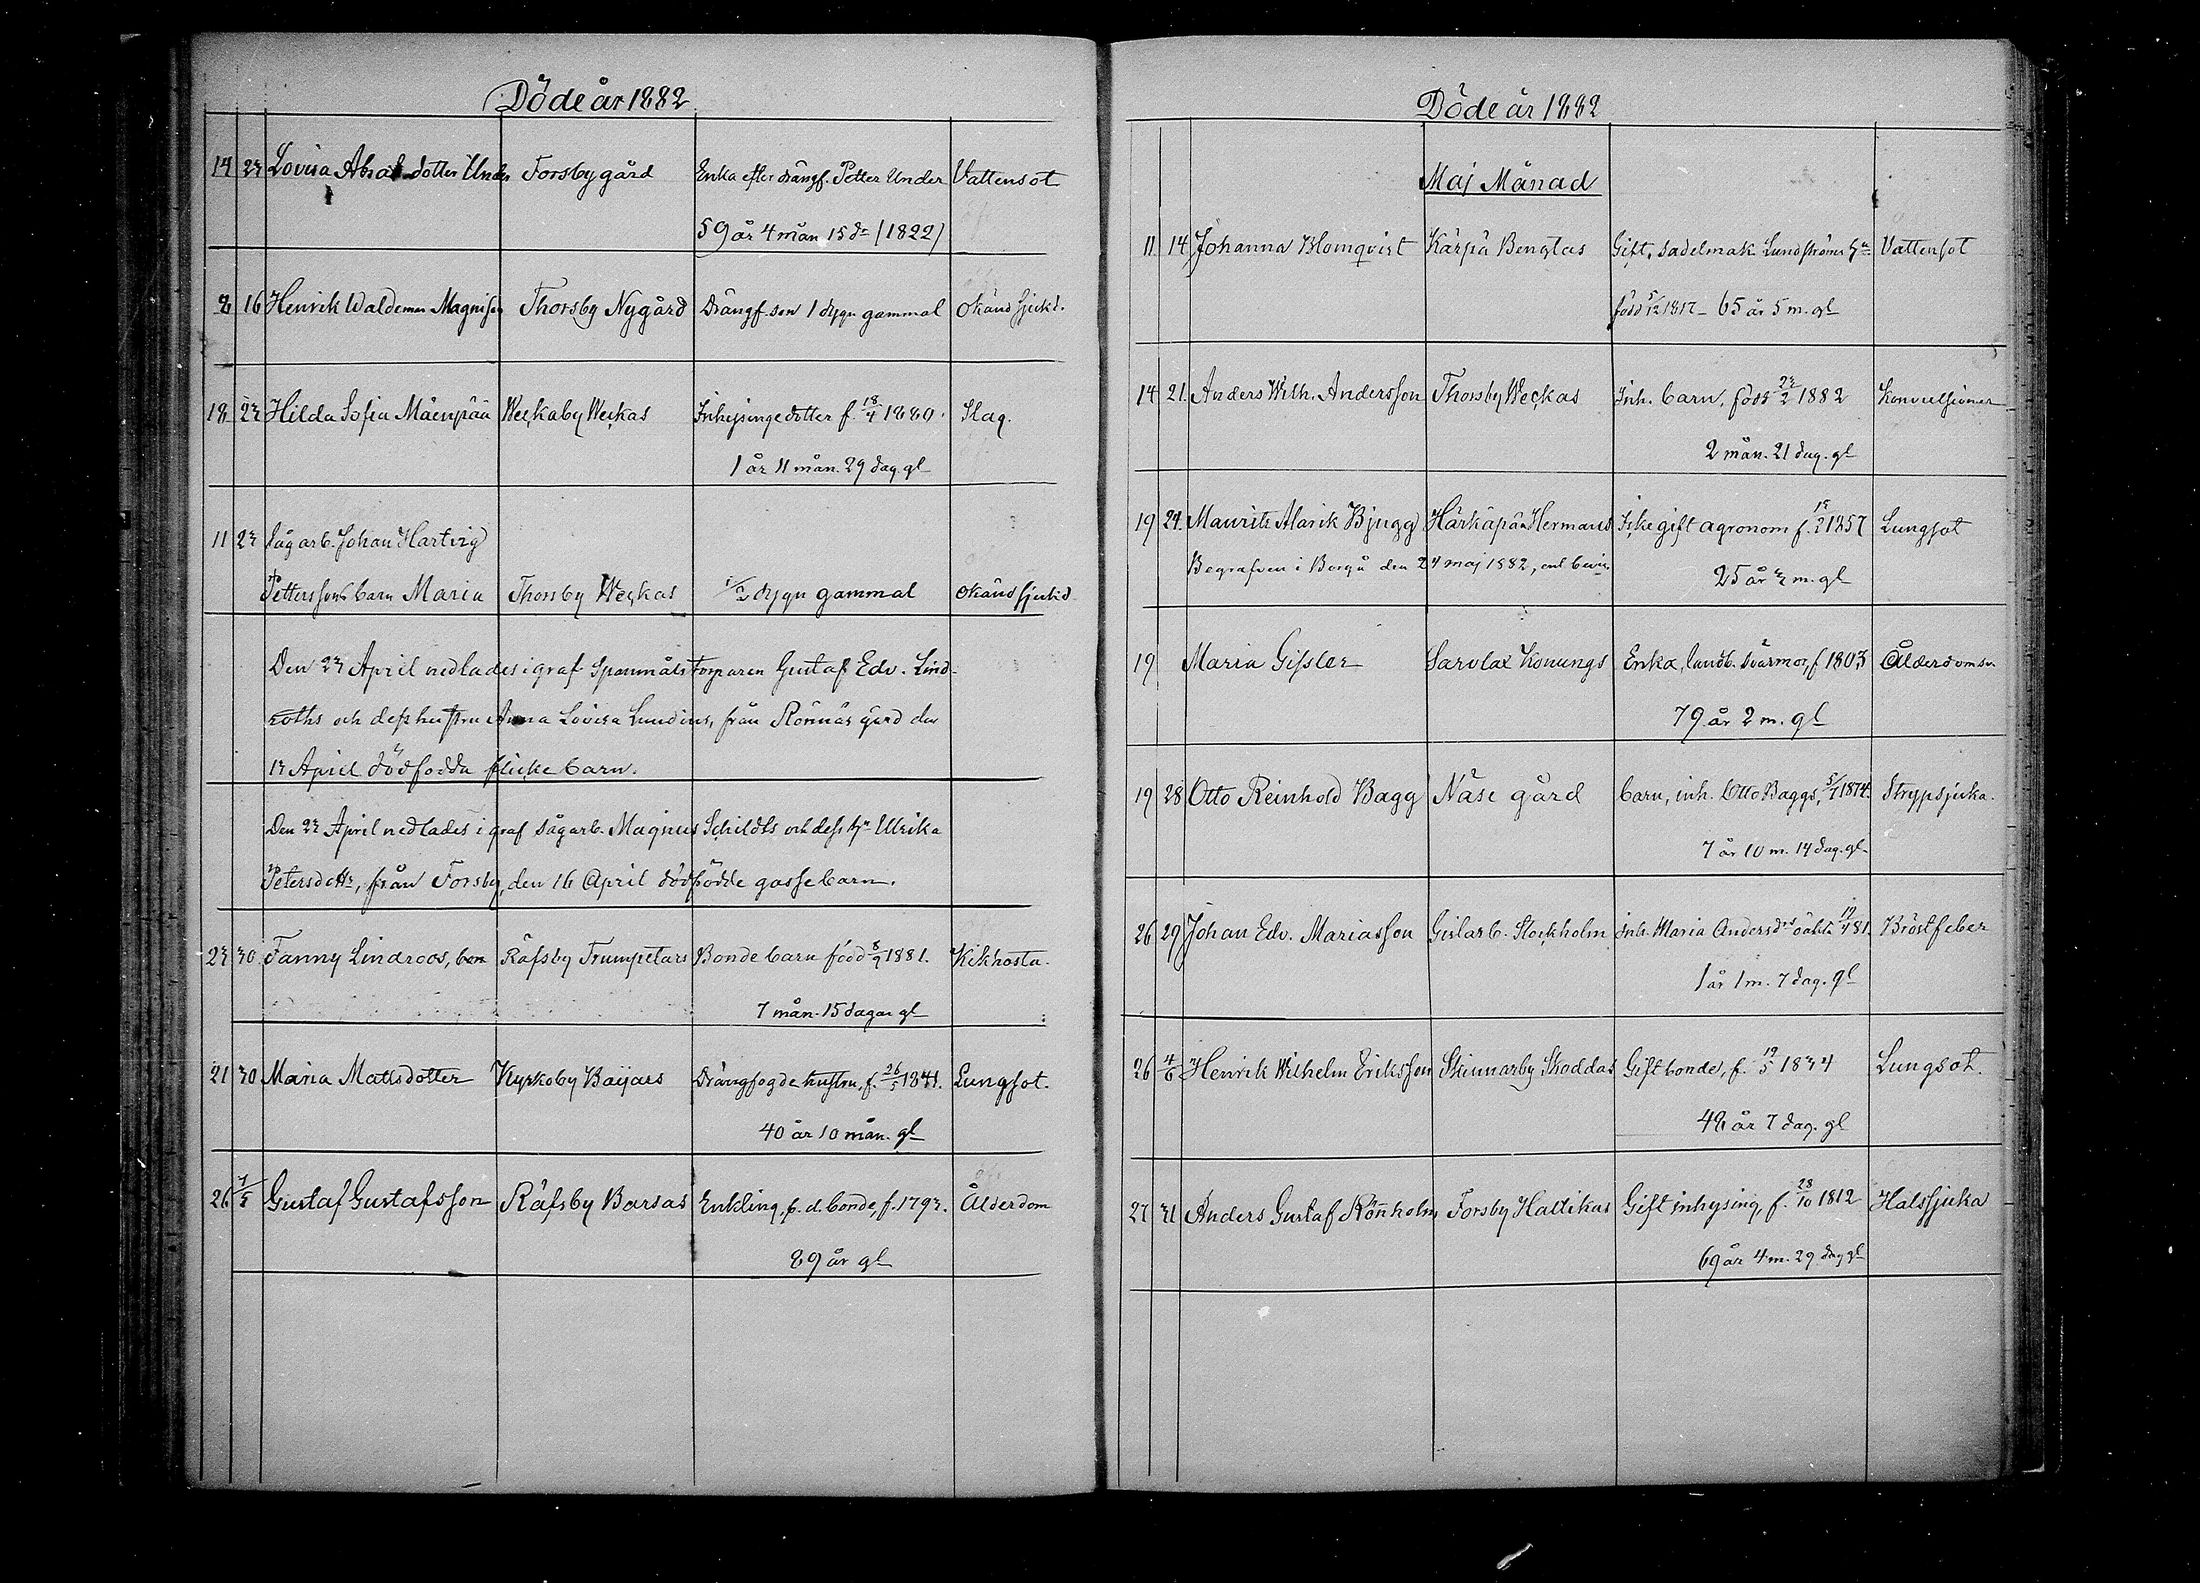 Döde år 1882
14 23 Lovisa Absal.dotter Under Forsby gård Enka efter drängf. Petter Under Vattensot
59 år 4 mån 15 d. (1822)
8 16 Henrik Waldemar Magnisson Thorsby Nygård Drängf. son 1 dygn gammal okänd sjukd.
18 23 Hilda Sofia Mäenpää Weckaby Weckas Inhysinge dotter f. 18/4 1880. Slag.
1 år 11 mån. 29 dag. gl
11 23 Sågarb. Johan Hartvig
Petterssons barn Maria Thorsby Weckas 1/2 dygn gammal okänd sjukd
Den 23 April nedlades i graf Spanmåls Torparen Gustaf Edv. Lind-
roths och dess hustru Anna Lovisa Lundins, från Rönnäs gård den
13 April dödfödda flickebarn.
Den 23 April nedlades i graf sågarb. Magnus Schildts och dess hu Ulrika
Petersdottr, från Forsby, den 16 April dödfödde gossebarn.
23 30 Fanny Lindroos, barn Räfsby Trumpetars Bonde barn född 8/9 1881. Kikhosta.
7 mån. 15 dagar gl
21 30 Maria Mattsdotter Kyrkoby Baijars Drängfogde hustru, f. 26/5 1841. Lungsot.
40 år 10 mån. gl
26 7/5 Gustaf Gustafsson Räfsby Barsas Enkling, f. d. bonde, f. 1793. Ålderdom
89 år gl
Döde år 1882
Maj Månad
11 14 Johanna Blomqvist Kärpä Bengtas Gift, sadelmak. Lundströms hu Vattensot
född 5/12 1817 - 65 år 5 m. gl
14 21. Anders Wilh. Andersson Thorsby Weckas Inh. barn, född 23/2 1882 Konvulsioner
2 mån. 21 dag. gl
19 24. Maurits Alarik Bjugg Härkäpää Hermans Icke gift agronom f. 1857 Lungsot
Begrafven i Borgå den 24 maj 1882, enl bevis.
25 år m. gl
19 Maria Gissler Sarvlax Konungs Enka, landb. svärmor, f 1803 Ålderdomsv
79 år 2 m. gl
19 28 Otto Reinhold Bagg Näse gård barn, inh. Otto Baggs, 5/7 1874. Strypsjuka.
7 år 10 m. 14 dag. gl.
26 29 Johan Edv. Mariasson Gislarb. Stockholm inh. Maria Andersdrs oäkta 19/4 81. Bröstfeber
1 år 1 m. 7 dag. gl
26 4/6 Henrik Wilhelm Eriksson Skinnarby Skoddas Gift bonde, f. 19/5 1834 Lungsot.
48 år 7 dag. gl
27 31 Anders Gustaf Rönnholm Forsby Hattikas Gift inhysing, f. 28/10 1812 Halssjuka
69 år 4 m. 29 dag gl